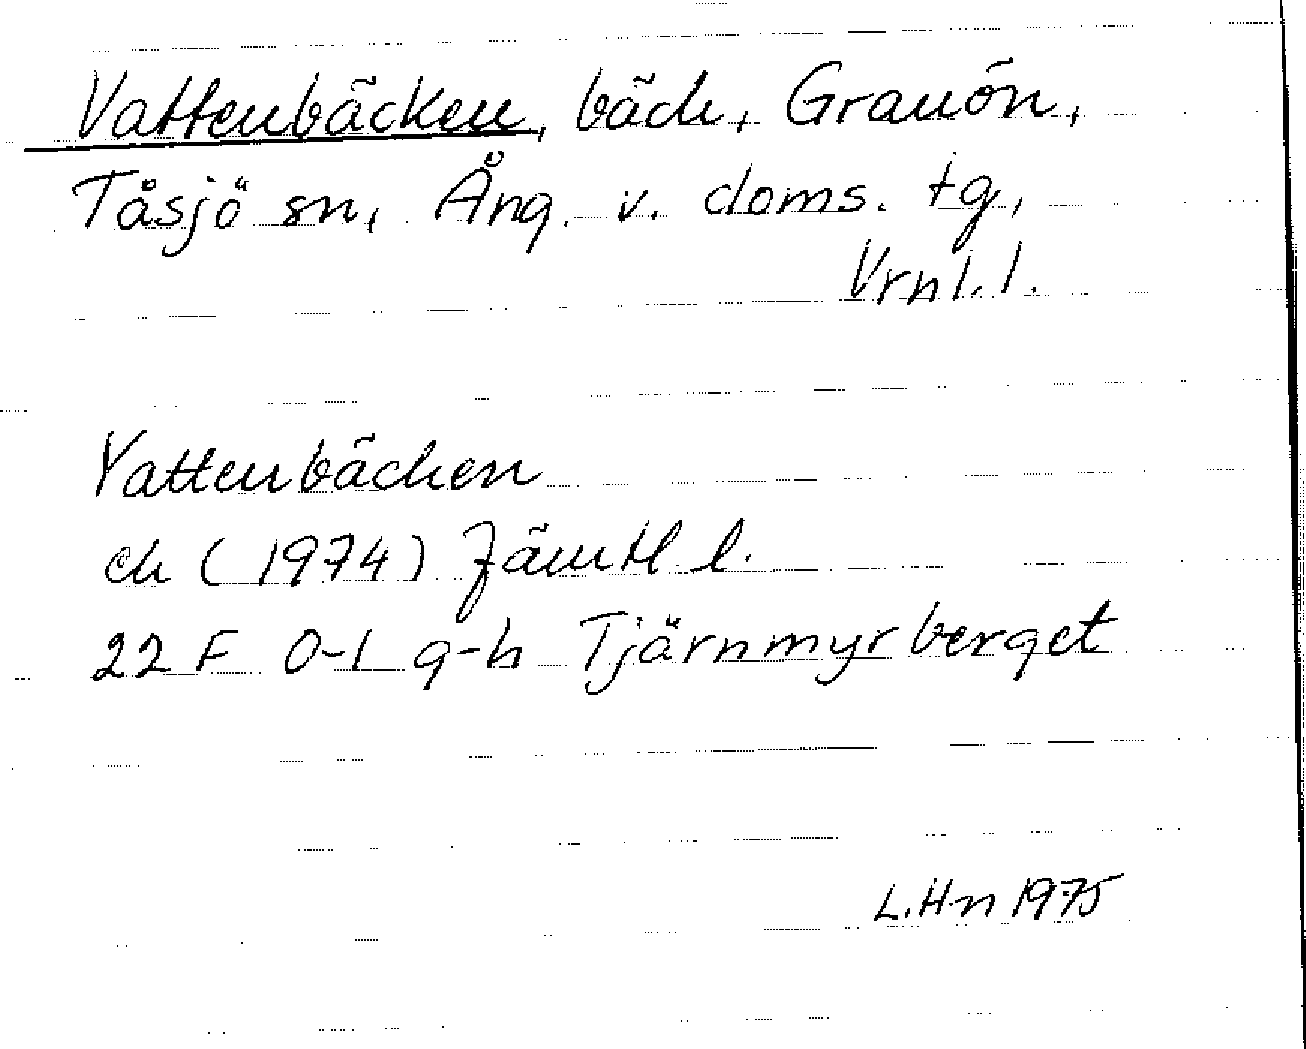 Vattenbäcken, bäck, Granön,
Tåsjö sn, Ång. v. doms. tg,
Vrnl. l.
Vattenbäcken
ek (1974) Jämtl l.
22 F 0-1 g-h Tjärnmyrberget
L.H-n 1975